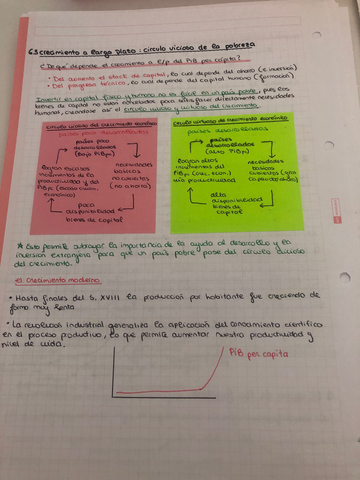 6.3 Crecimiento a largo plazo: círculo vicioso de la pobreza
¿De qué depende el crecimiento a L/p del PIB per cápita?
• Del aumento el stock de capital, lo cual depende del ahorro (e inversión)
• Del progreso técnico, lo cual depende del capital humano (formación)
Invertir en capital físico y humano no es fácil en un país pobre, pues los
bienes de capital no están orientados para satisfacer directamente necesidades
humanas, creándose así el círculo vicioso y virtuoso del crecimiento.
círculo vicioso del crecimiento económico
países poco desarrollados
países poco
desarrollados
(bajo PIBp)
logran escasos
incrementos de la
productividad y del
PIBp (escaso crecim.
económico)
necesidades
básicas
no cubiertas
(no ahorra)
poca
disponibilidad
bienes de capital
círculo virtuoso del crecimiento económico
países desarrollados
países
desarrollados
(alto PIBp)
logran altos
incrementos del
PIBp
productividad
necesidades
básicas
cubiertas
alta
disponibilidad
bienes de
capital
* Esto permite subrayar la importancia de la ayuda al desarrollo y la
inversión extranjera para que un país pobre pase del círculo vicioso
del crecimiento.
el crecimiento moderno
• Hasta finales del S. XVIII la producción por habitante fue creciendo de
forma muy lenta
• La revolución industrial generaliza la aplicación del conocimiento científico
en el proceso productivo, lo que permite aumentar nuestra productividad y
nivel de vida.
PIB per capita